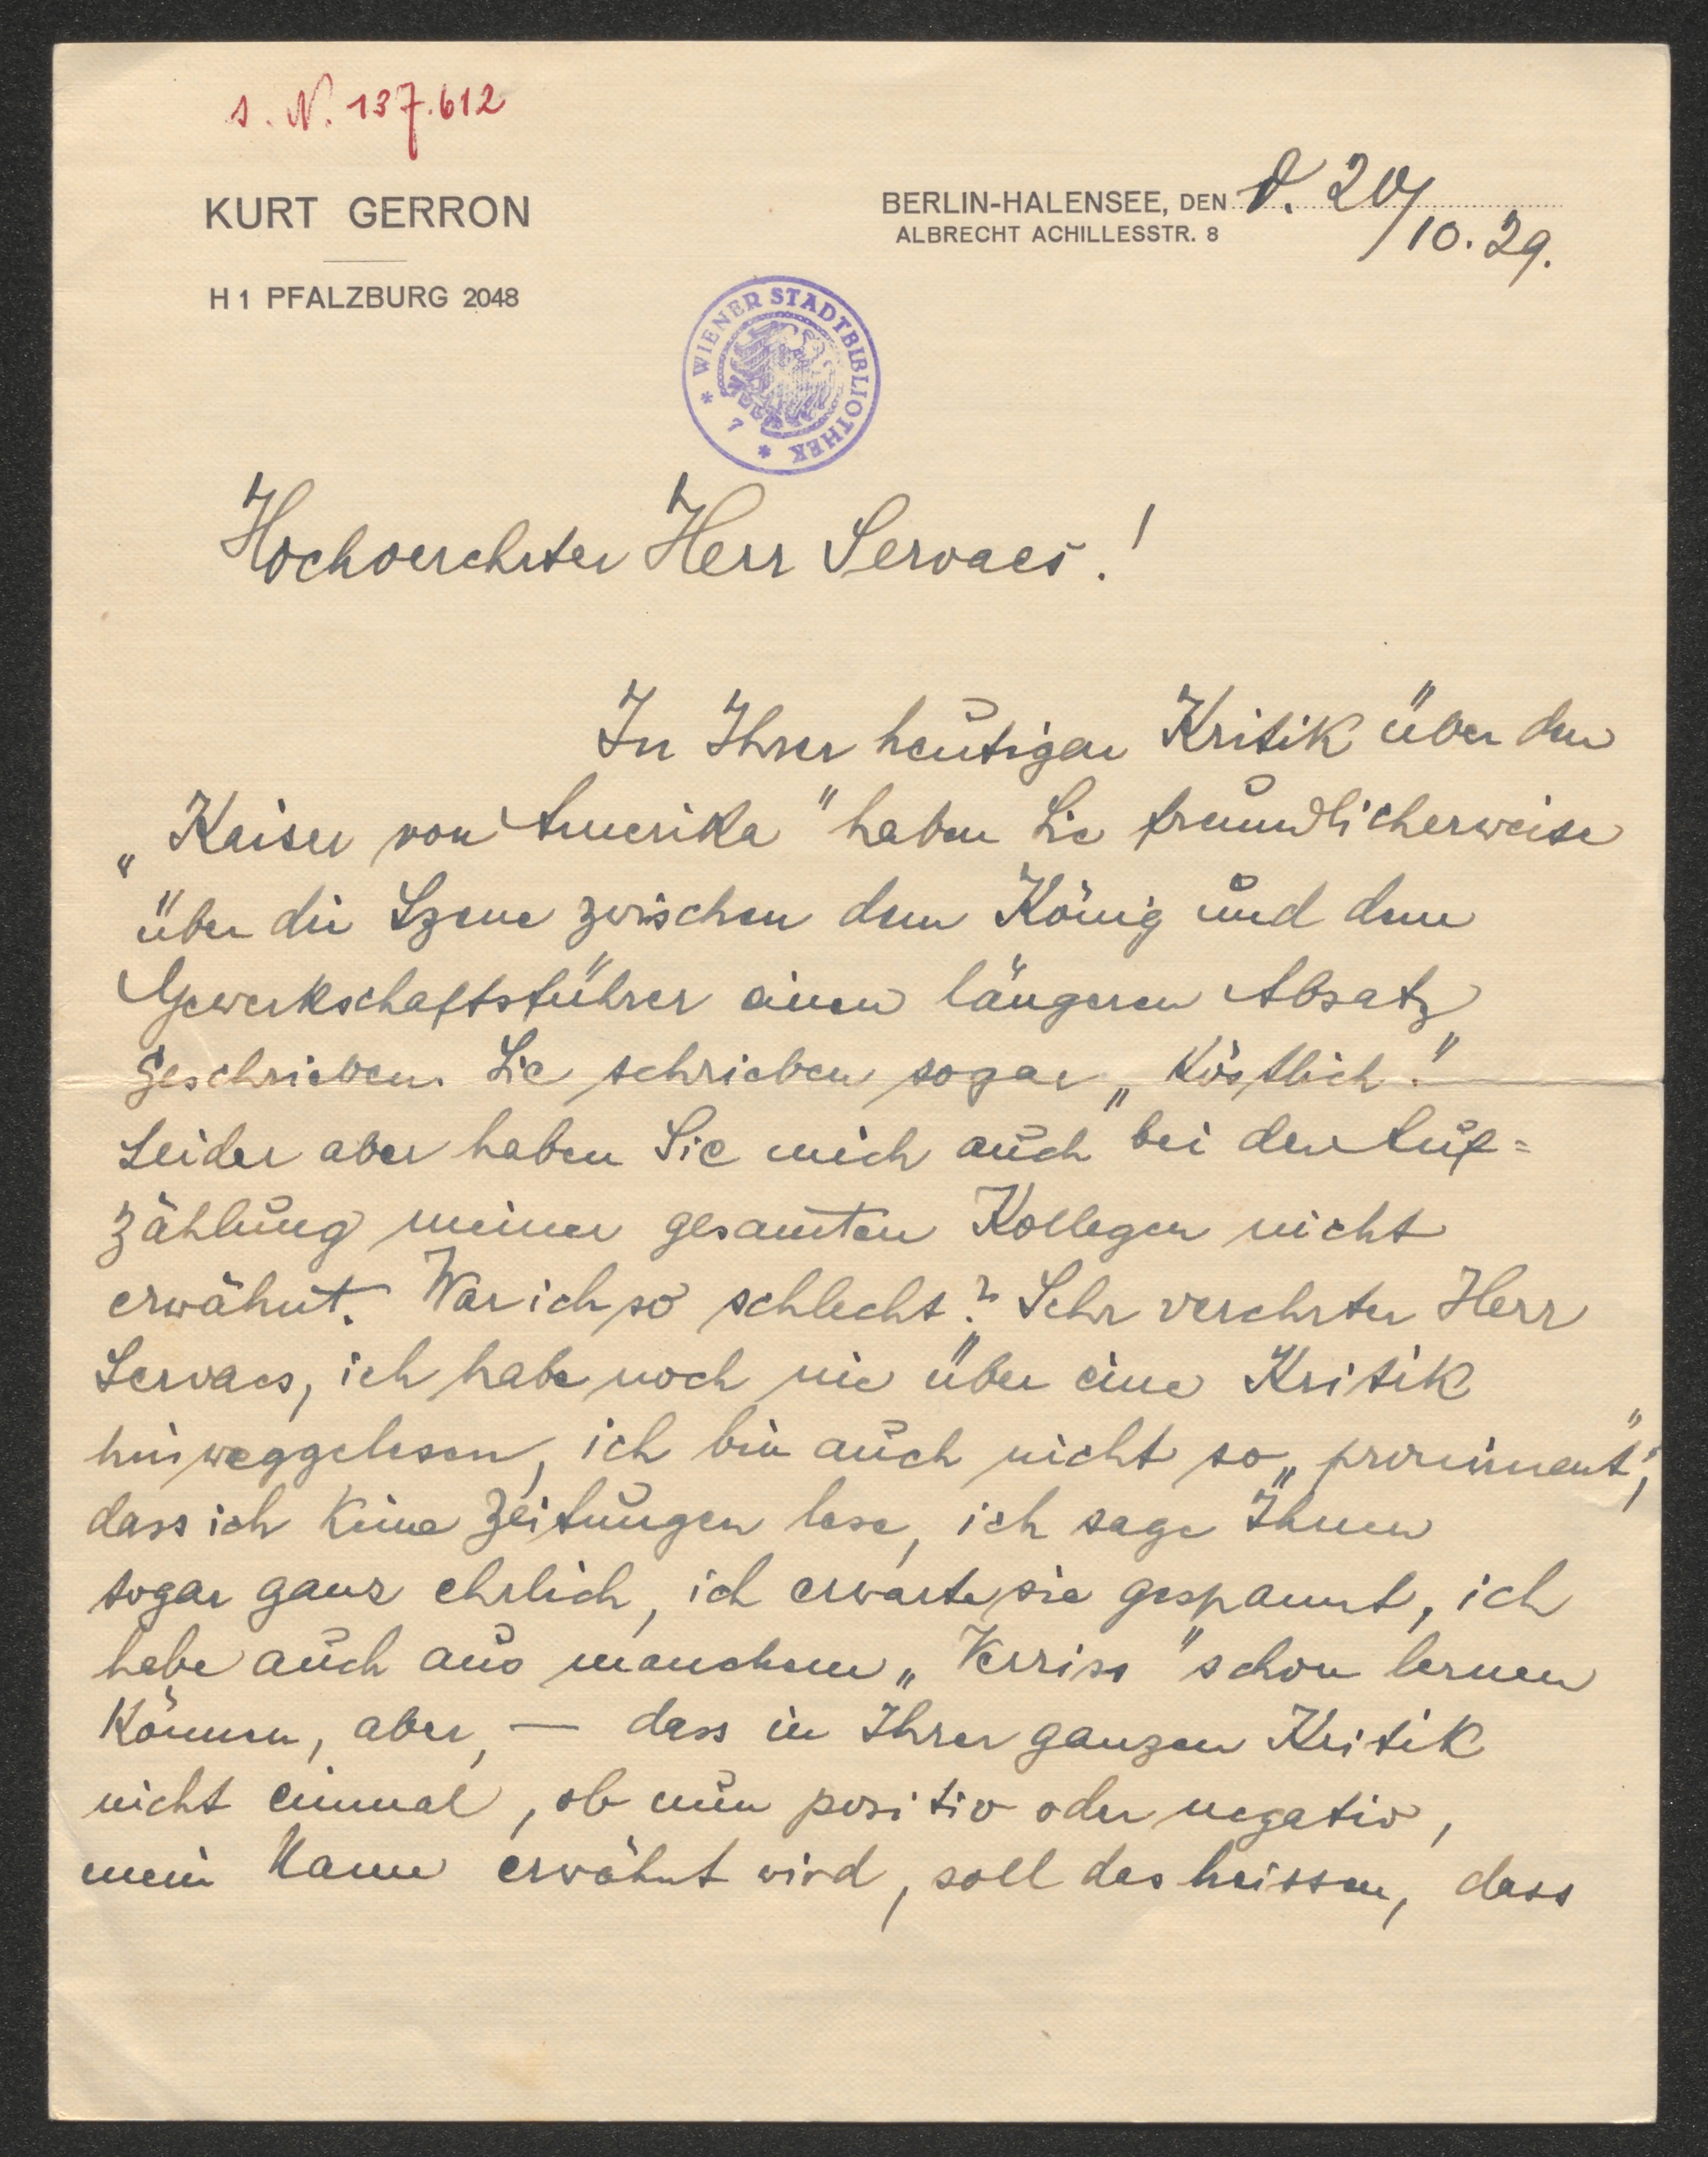 s. N. 137.612
KURT GERRON
H 1 PFALZBURG 2048
BERLIN-HALENSEE, DEN d. 20/10.29.
ALBRECHT ACHILLESSTR. 8
* WIENER STADTBIBLIOTHEK * 7
Hochverehrter Herr Servaes!
In Ihrer heutigen Kritik über den
„Kaiser von Amerika" haben Sie freundlicherweise
über die Szene zwischen dem König und dem
Gewerkschaftsführer einen längeren Absatz
geschrieben. Sie schrieben sogar „köstlich."
Leider aber haben Sie mich auch bei der Auf=
zählung meiner gesamten Kollegen nicht
erwähnt. War ich so schlecht? Sehr verehrter Herr
Servaes, ich habe noch nie über eine Kritik
hinweggelesen, ich bin auch nicht so „prominent",
dass ich keine Zeitungen lese, ich sage Ihnen
sogar ganz ehrlich, ich erwarte sie gespannt, ich
habe auch aus manchem „Verriss" schon lernen
können, aber, — dass in Ihrer ganzen Kritik
nicht einmal, ob nun positiv oder negativ,
mein Name erwähnt wird, soll das heissen, dass